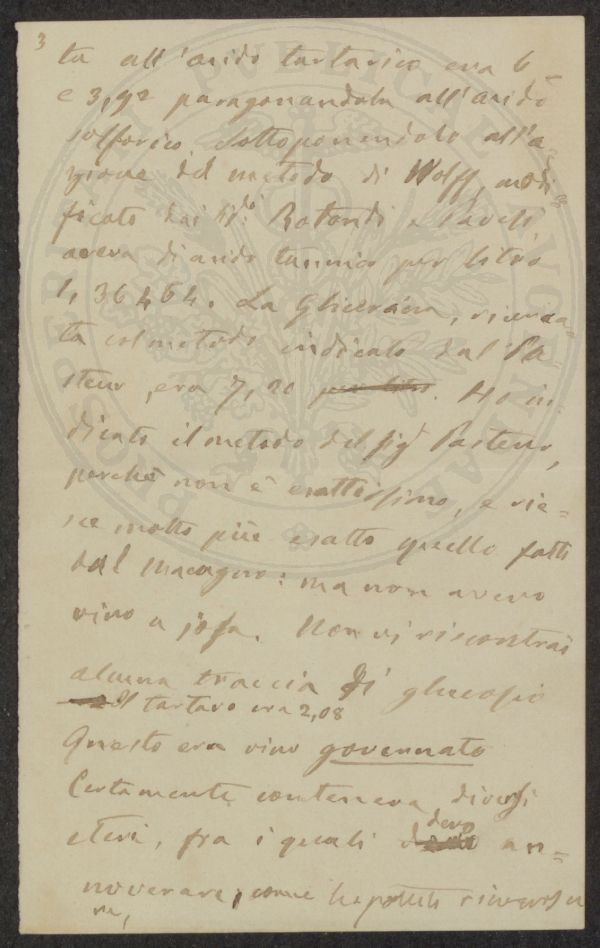 3
ta all'acido tartarico era 6 –
e 3,92 paragonandola all'acido
solforico. Sottoponendolo all'a-
zione del metodo di Wolff, modi
ficato dai Si. Rotondi e Pavesi,
aveva di acido tannico per litro
1,36464. La Glicerina, ricerca
ta col metodo indicato dal Pa
steur, era 7,20 per litro. Ho in-
dicato il metodo del Sig Pasteur,
perchè non è esattissimo, e rie=
sce molto più esatto quello fatti
dal Macagno: ma non avevo
vino a josa. Non vi riscontrai
alcuna traccia di glucosio
Il tartaro era 2,08
Questo era vino governato
Certamente conteneva diversi
eteri, fra i quali devo an=
noverare, come ho potuto
PROSPERITATI PVBLICAE AVGENDAE